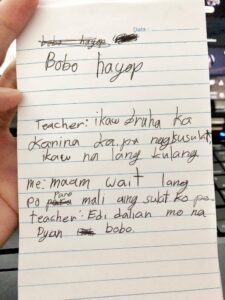 Data
bobo hayop
Bobo hayop
Teacher: ikaw bruha ka
kanina ka pa nagkusukt
ikaw na lang kulang
me: maam wait lang
po Para mali aing subt ko po
teacher: Edi dalian mo na
Dyan bobo.